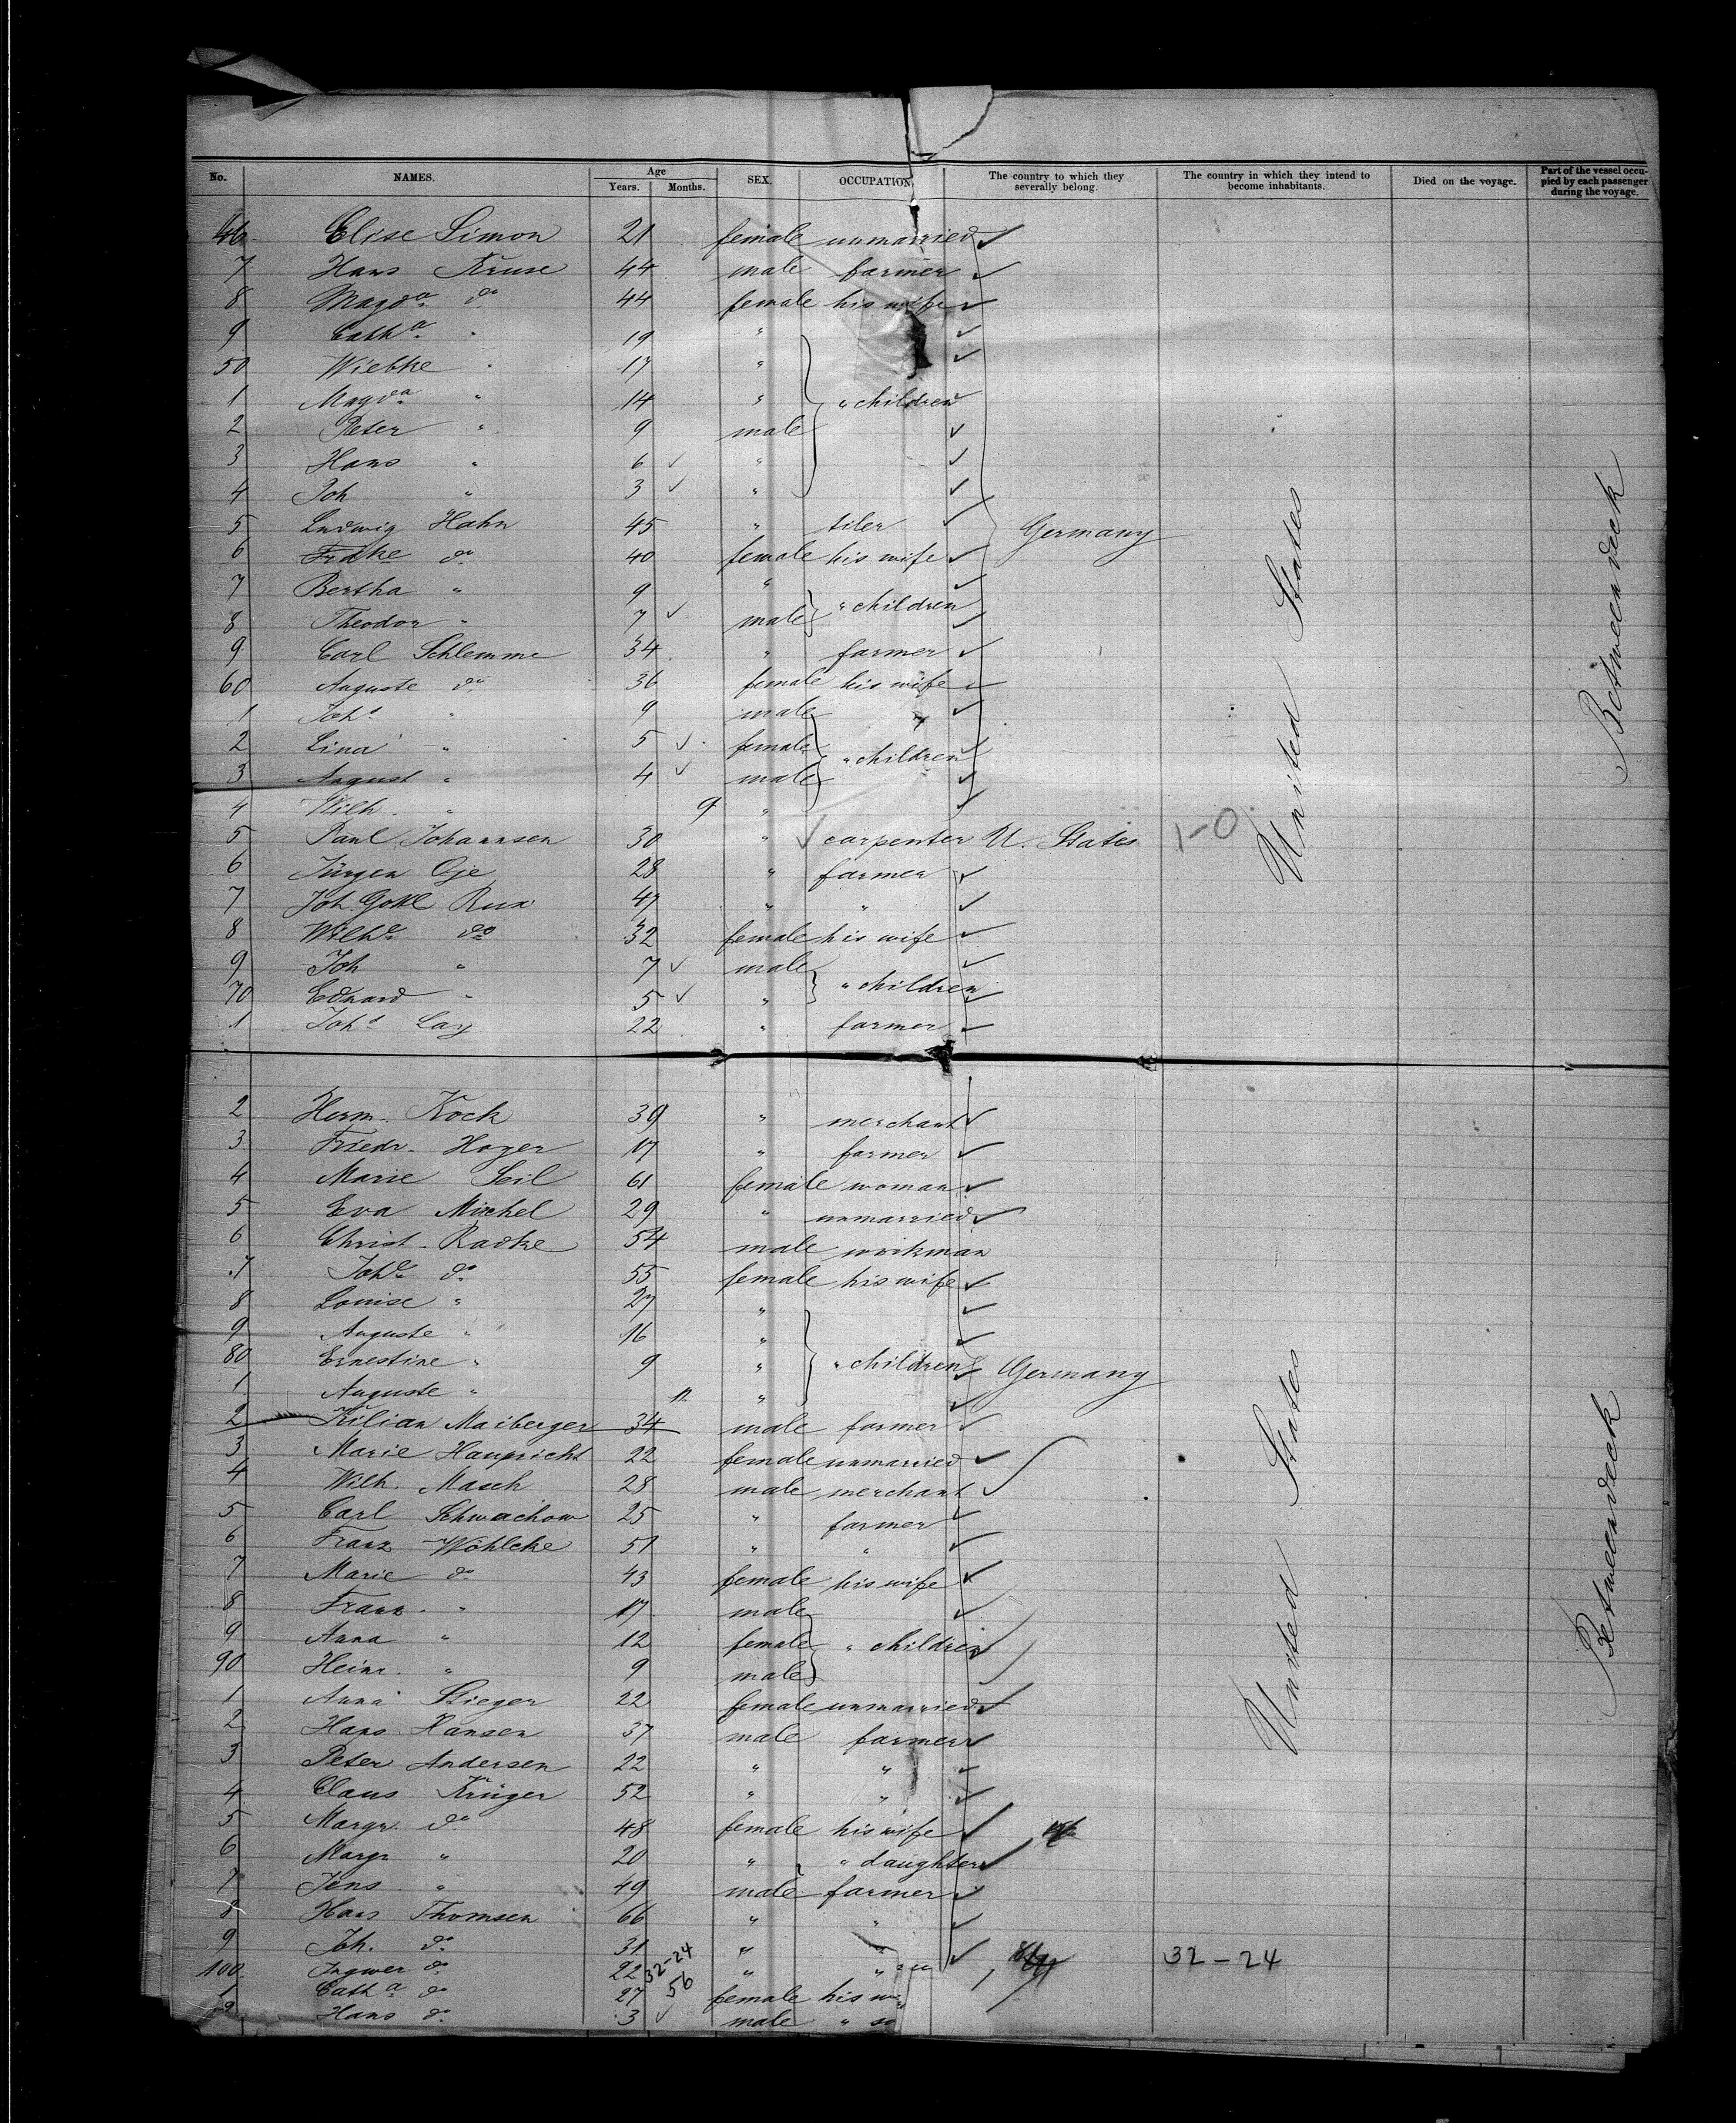 No. NAMES. Age Years. Months. SEX. OCCUPATION The country to which they severally belong. The country in which they intend to become inhabitants. Died on the voyage. Part of the vessel occupied by each passenger during the voyage.
46 Elise Simon 21 female unmarried
7 Hans Kruse 44 male farmer
8 Magda do 44 female his wife
9 Catha " 19 "
50 Wiebke " 17 "
1 Magda " 14 " " children
2 Peter " 9 male
3 Hans " 6 "
4 Joh " 3 "
5 Ludwig Hahn 45 " tiler Germany
6 Fridke do 40 female his wife
7 Bertha " 9 "
8 Theodor " 7 male " children
9 Carl Schlemme 34 " farmer
60 Auguste do 36 female his wife
1 Johs " 9 male
2 Lina " 5 female " children
3 August " 4 male
4 Wilh. " 9 "
5 Paul Johannsen 30 " carpenter U. States 1-0
6 Jürgen Oje 28 " farmer
7 Joh. Gottl Rux 47 " "
8 Wilhe do 32 female his wife
9 Joh " 7 male
70 Eduard " 5 " " children
1 Johs Lay 22 " farmer
United States
Betweendeck
2 Herm. Kock 39 " merchant
3 Friedr. Hoyer 17 " farmer
4 Marie Seil 61 female woman
5 Eva Michel 29 " unmarried
6 Christ. Radke 54 male workman
7 Johe do 55 female his wife
8 Louise " 27 "
9 Auguste " 16 "
80 Ernestine " 9 " " children Germany
1 Auguste " 11 "
2 Kilian Maiberger 34 male farmer
3 Marie Haupricht 22 female unmarried
4 Wilh. Masch 28 male merchant
5 Carl Schwachow 25 " farmer
6 Franz Wöhlcke 51 " "
7 Marie do 43 female his wife
8 Franz. " 17 male
9 Anna " 12 female " children
90 Heinr. " 9 male
1 Anna Stieger 22 female unmarried
2 Hans Hansen 37 male farmer
3 Peter Andersen 22 " "
4 Claus Krüger 52 " "
5 Margr. do 48 female his wife
6 Margr " 20 " " daughter
7 Jens " 49 male farmer
8 Hans Thomsen 66 " "
9 Joh. do 31 " "
100 Ingwer do 22 32-24 " " 32-24
1 Catha do 27 56 female his
2 Hans do 3 male "
United States
Betweendeck